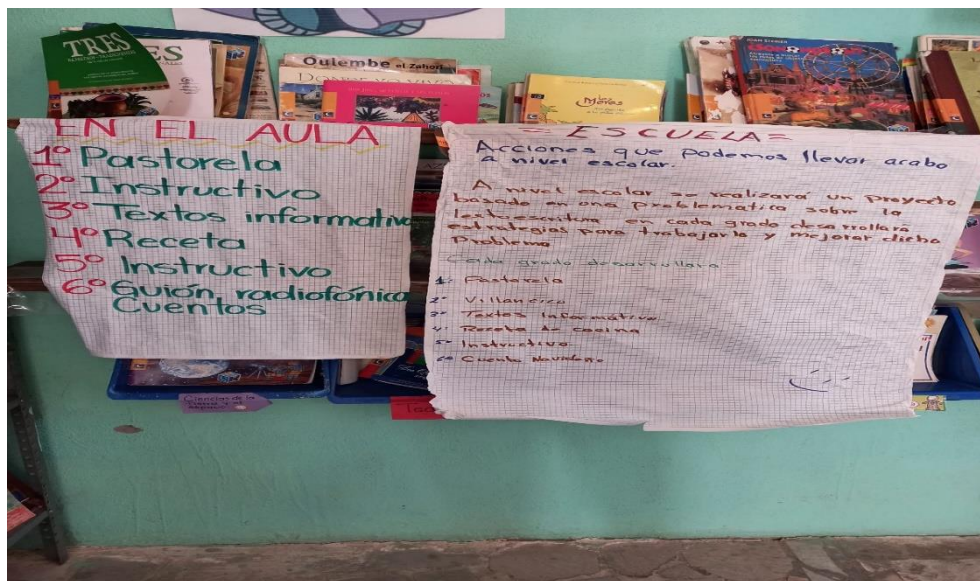 TRES
ES
Oulembe el Zahorí
Las
Moras
EN EL AULA
1º Pastorela
2º Instructivo
3º Textos informativo
4º Receta
5º Instructivo
6º Guión radiofónico
Cuentos
= ESCUELA =
Acciones que podemos llevar acabo
a nivel escolar.
A nivel escolar se realizará un proyecto
basado en una problemática sobre la
lectoescritura en cada grado desarrollara
estrategias para trabajarla y mejorar dicha
Problema
Cada grado desarrollara
1º Pastorela
2º Villancico
3º Textos Informativo
4º Receta de cocina
5º Instructivo
6º Cuento Navideño
Ciencias de la
Tierra y el
espacio